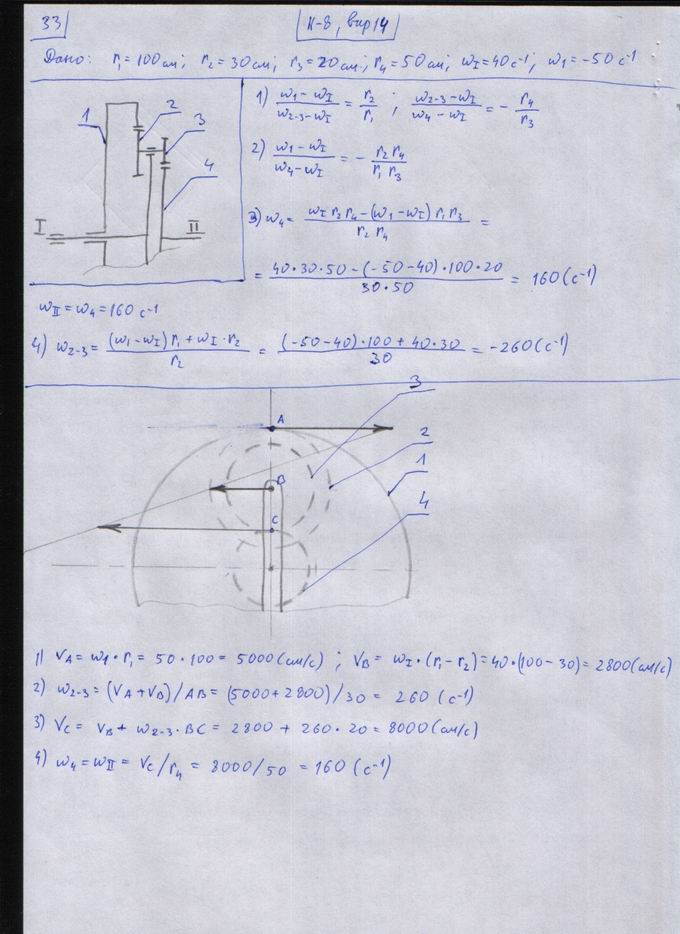 33
К-8, вар 14
Дано: r₁ = 100 см; r₂ = 30 см; r₃ = 20 см; r₄ = 50 см; ω_I = 40 с⁻¹; ω₁ = -50 с⁻¹
1
2
3
4
I
II
1) (ω₁ - ω_I)/(ω₂₋₃ - ω_I) = r₂/r₁ ; (ω₂₋₃ - ω_I)/(ω₄ - ω_I) = - r₄/r₃
2) (ω₁ - ω_I)/(ω₄ - ω_I) = - r₂ r₄/r₁ r₃
3) ω₄ = (ω_I r₂ r₄ - (ω₁ - ω_I) r₁ r₃)/(r₂ r₄) =
= (40·30·50 - (-50-40)·100·20)/(30·50) = 160 (с⁻¹)
ω_II = ω₄ = 160 с⁻¹
4) ω₂₋₃ = ((ω₁ - ω_I) r₁ + ω_I · r₂)/r₂ = ((-50-40)·100 + 40·30)/30 = -260 (с⁻¹)
A
B
C
3
2
1
4
1) V_A = ω₁ · r₁ = 50 · 100 = 5000 (см/с) ; V_B = ω_I · (r₁ - r₂) = 40·(100 - 30) = 2800 (см/с)
2) ω₂₋₃ = (V_A + V_B)/AB = (5000 + 2800)/30 = 260 (с⁻¹)
3) V_C = V_B + ω₂₋₃ · BC = 2800 + 260 · 20 = 8000 (см/с)
4) ω₄ = ω_II = V_C/r₄ = 8000/50 = 160 (с⁻¹)